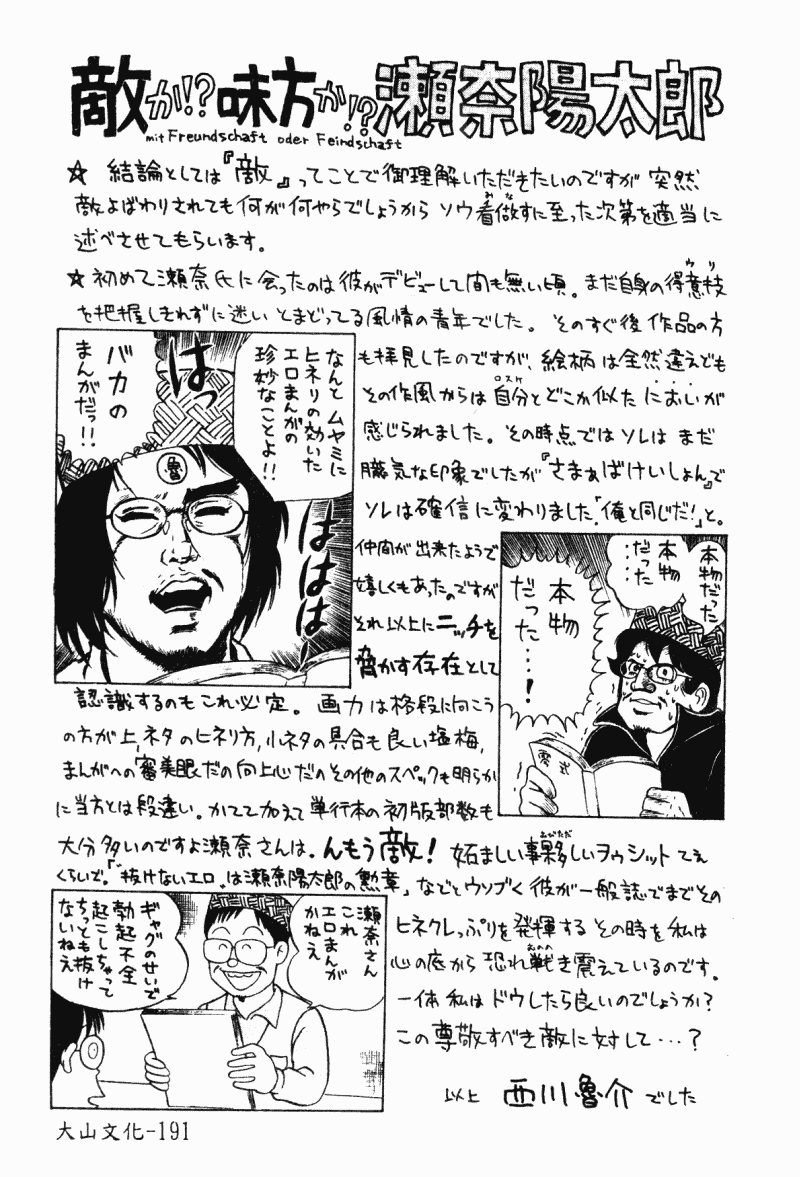 敵か!?味方か!?瀬奈陽太郎
mit Freundschaft oder Feindschaft
☆ 結論としては『敵』ってことで御理解いただきたいのですが 突然
敵よばわりされても何が何やらでしょうから ソウ看做すに至った次第を適当に
みな
述べさせてもらいます。
☆初めて瀬奈氏に会ったのは彼がデビューして間も無い頃。まだ自身の得意技
ウリ
を把握しきれずに迷い とまどってる風情の青年でした。そのすぐ後 作品の方
も拝見したのですが、絵柄は全然違えども
その作風からは自分とどこか似た においが
ロスケ
感じられました。その時点ではソレは まだ
朧気な印象でしたが『さまぁばけいしょん』で
ソレは確信に変わりました「俺と同じだ!」と。
なんと ムヤミに
ヒネリの効いた
エロまんがの
珍妙なことよ!!
はっ
バカの
まんがだっ!!
魯
ははは
仲間が出来たようで
嬉しくもあったのですが
それ以上にニッチを
脅かす存在として
本物だった
本物
だった
……
本物
だった…!
零式
認識するのもこれ必定。画力は格段に向こう
の方が上、ネタのヒネリ方、小ネタの具合も良い塩梅、
まんがへの審美眼だの向上心だのその他のスペックも明らか
に当方とは段違い。かてて加えて単行本の初版部数も
大分多いのですよ瀬奈さんは。んもう敵! 妬ましい事夥しいヲゥシットてえ
おびただ
くらいで。「"抜けないエロ"は瀬奈陽太郎の勲章」などとウソブく彼が一般誌でまでその
ヒネクレっぷりを発揮するその時を私は
心の底から恐れ戦き震えているのです。
おのの
一体 私はドウしたら良いのでしょうか?
この尊敬すべき敵に対して…?
瀬奈さん
これ
エロまんが
かねえ
ギャグのせいで
勃起不全
起こしちゃって
ちっとも抜け
ないねえ
以上 西川魯介でした
大山文化-191